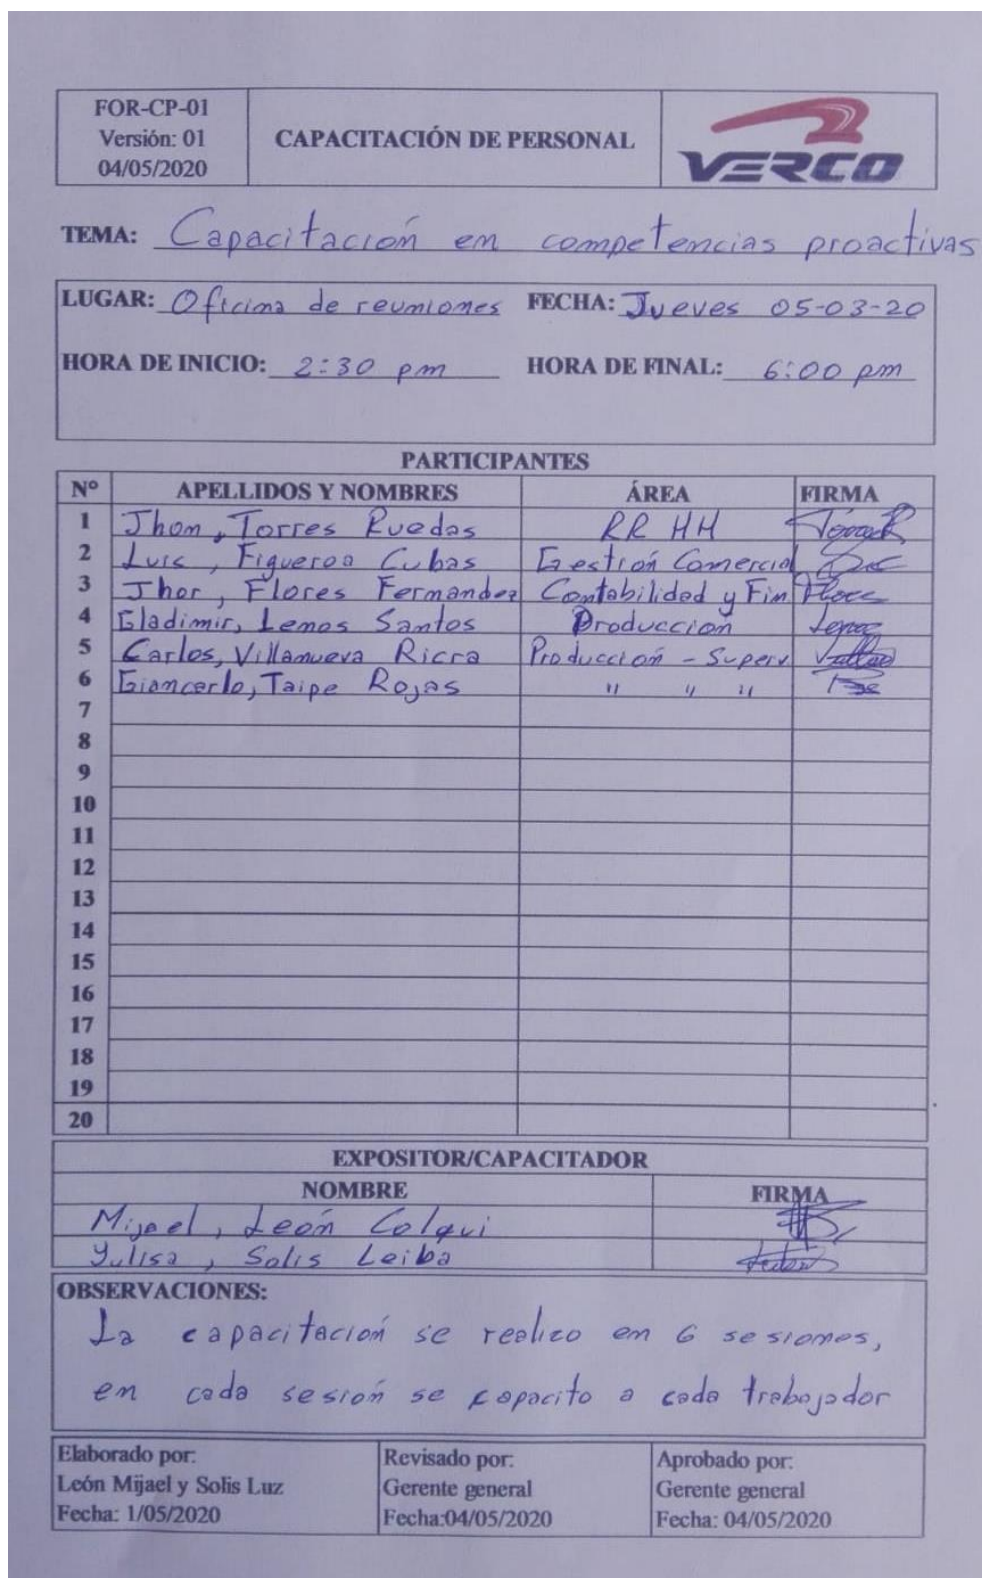 FOR-CP-01
Versión: 01
04/05/2020
CAPACITACIÓN DE PERSONAL
VERCO
TEMA: Capacitación en competencias proactivas
LUGAR: Oficina de reuniones FECHA: Jueves 05-03-20
HORA DE INICIO: 2:30 pm HORA DE FINAL: 6:00 pm
PARTICIPANTES
Nº APELLIDOS Y NOMBRES ÁREA FIRMA
1 Jhon, Torres Ruedas RR HH
2 Luis, Figueroa Cubas Gestión Comercial
3 Jhor, Flores Fernandez Contabilidad y Fin
4 Gladimir, Lemos Santos Producción
5 Carlos, Villanueva Ricra Producción - Superv
6 Giancarlo, Taipe Rojas " " "
7
8
9
10
11
12
13
14
15
16
17
18
19
20
EXPOSITOR/CAPACITADOR
NOMBRE FIRMA
Mijael, León Colqui
Yulisa, Solis Leiba
OBSERVACIONES:
La capacitación se realizo en 6 sesiones,
en cada sesión se capacito a cada trabajador
Elaborado por: Revisado por: Aprobado por:
León Mijael y Solis Luz Gerente general Gerente general
Fecha: 1/05/2020 Fecha:04/05/2020 Fecha: 04/05/2020